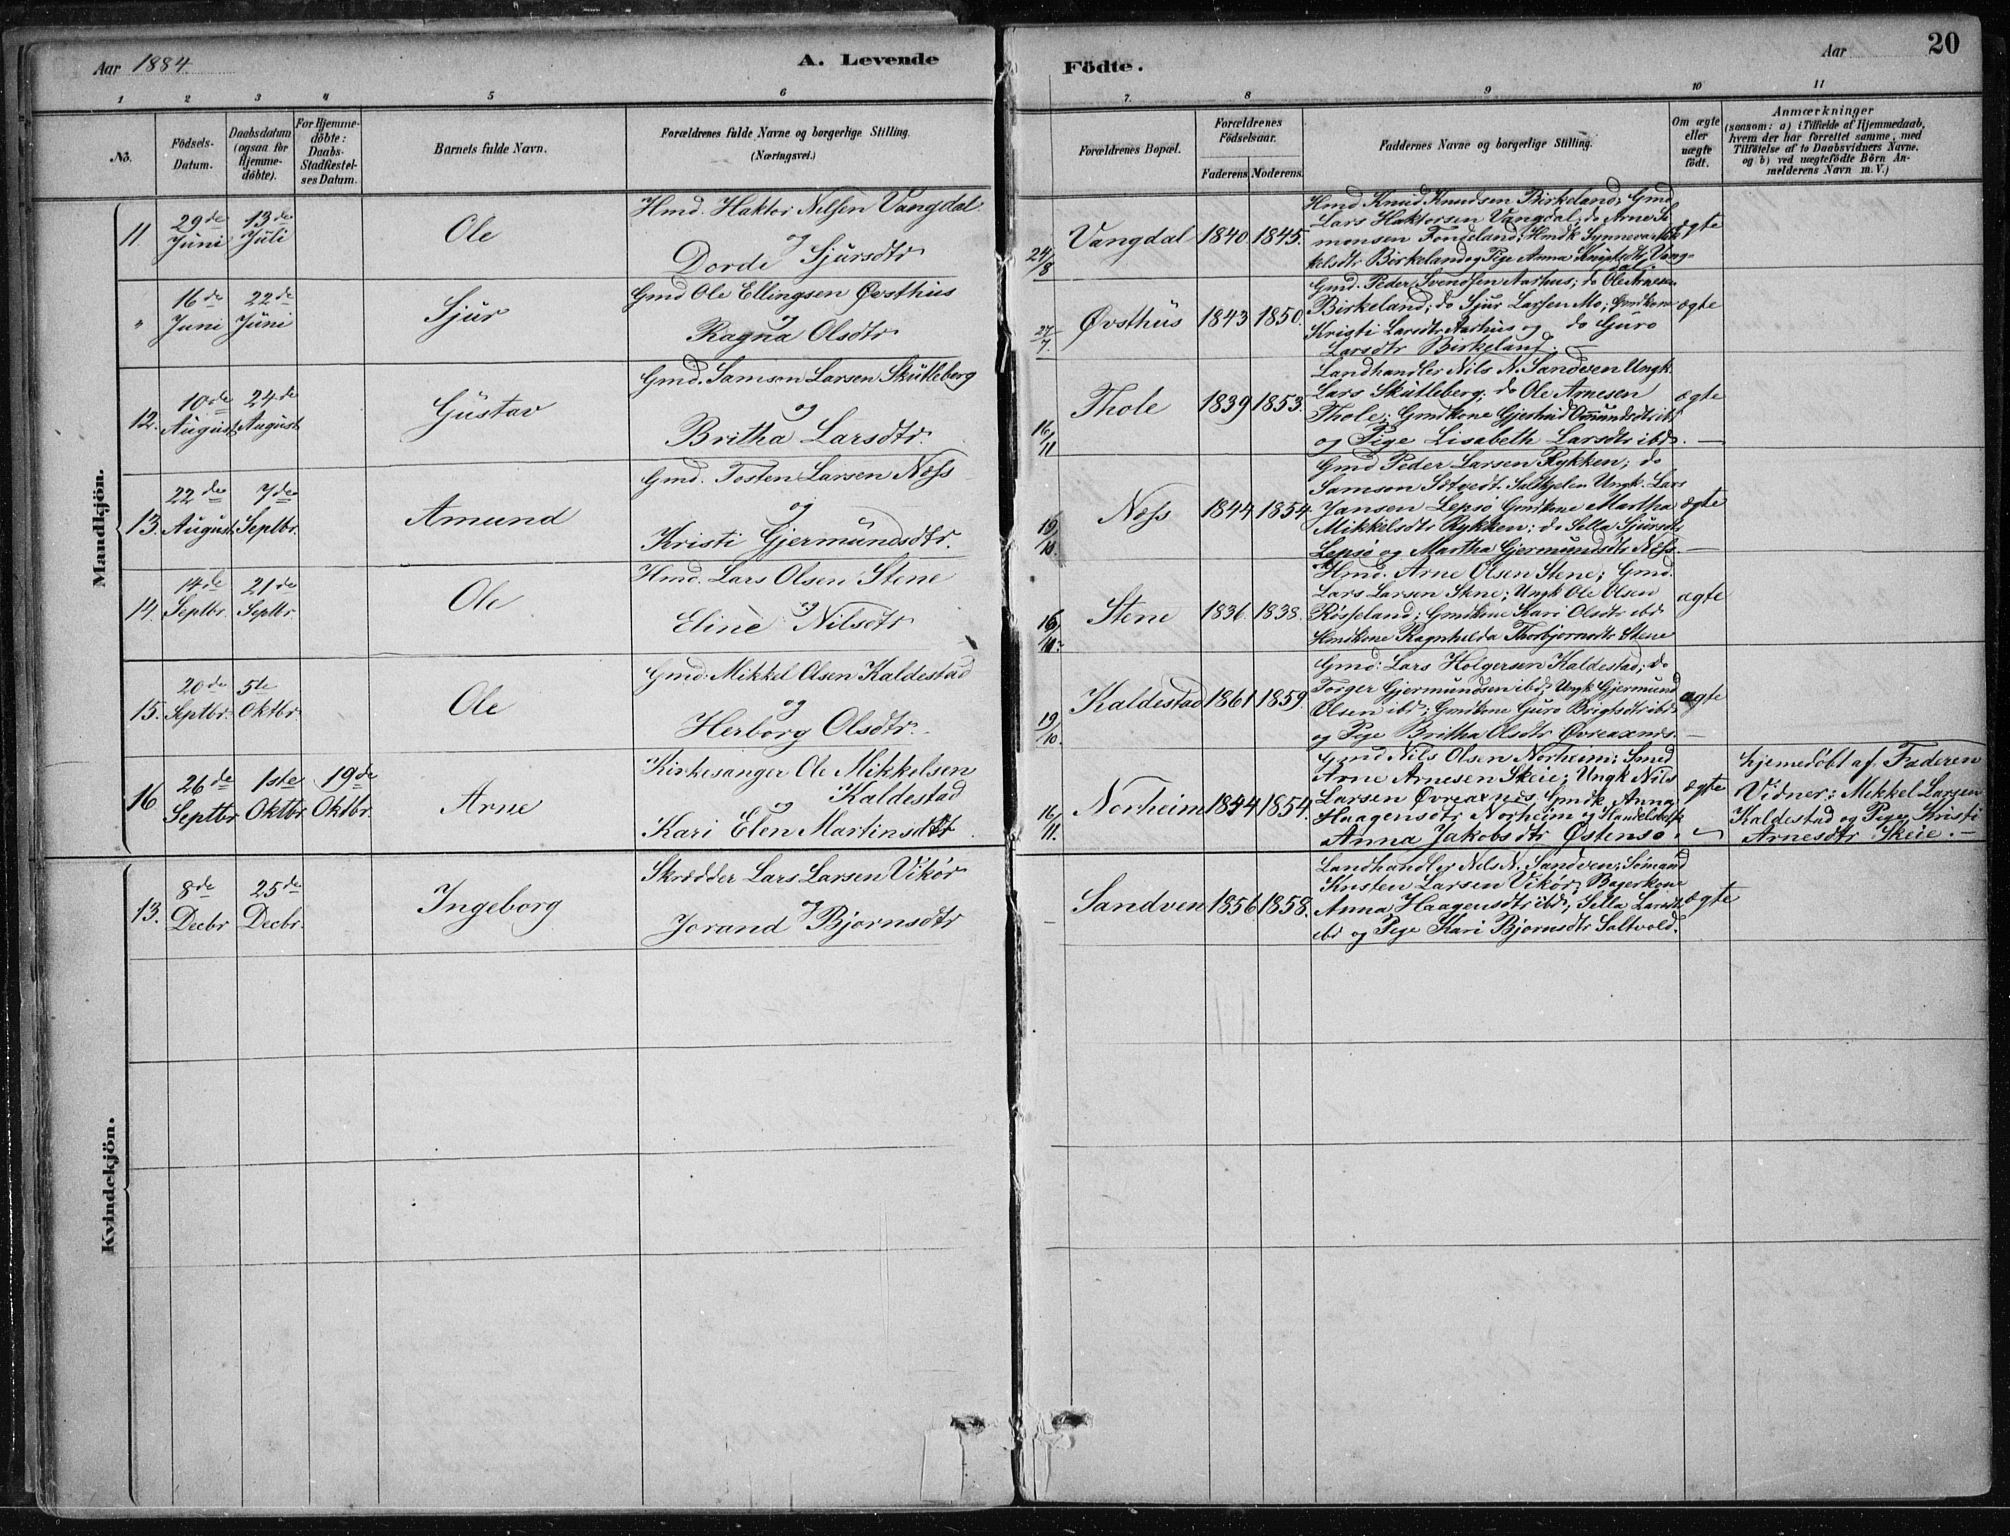 Aar 1884.
A. Levende
Födte.
Aar
20
1
2
3
4
5
6
7.
8
9
10
11
No.
Födsels-
Datum.
Daabsdatum
(ogsaa for
Hjemme-
döbte).
For Hjemme-
döbte:
Daabs-
Stadfæstel-
ses Datum.
Barnets fulde Navn.
Forældrenes fulde Navne og borgerlige Stilling.
(Næringsvei.)
Forældrenes Bopæl.
Forældrenes
Födselsaar.
Faderens.
Moderens.
Faddernes Navne og borgerlige Stilling.
Om ægte
eller
uægte
födt.
Anmærkninger
(saasom: a) i Tilfælde af Hjemmedaab,
hvem der har forrettet samme, med
Tilföielse af to Daabsvidners Navne.
og b) ved uægtefödte Börn An-
melderens Navn m. V.)
Mandkjön.
11
29de
Juni
13de
Juli
Ole
Hmd. Haktor Nilsen Vangdal
og
Dorde Sjursdtr
24/8
Vangdal
1840.
1845.
Hmd Knud Knudsen Birkeland; Gmd
Lars Haktorsen Vangdal; do Arne Si
monsen Fondeland; Hmdk Synneva
kelsdtr Birkeland og Pige Anna Vang-
dal.
ægte
"
16de
Juni
22de
Juni
Sjur
Gmd Ole Ellingsen Øvsthus
og
Ragna Olsdtr
27/7.
Øvsthus
1843
1850.
Gmd. Peder Svendsen Aarhus; do Ole Arnesen
Birkeland; do Sjur Larsen Mo; Gmdkone
Kristi Larsdtr Aarhus og do Guro
Larsdtr Birkeland.
ægte
12.
10de
August
24de
August
Gustav
Gmd. Samson Larsen Skutleberg
og
Britha Larsdtr.
16/11
Thole
1839
1853.
Landhandler Nils N. Sandven Ungk
Lars Skutleberg. do Ole Arnesen
Thole; Gmdkone Gjertrud Omundsdtr ibd
og Pige Lisabeth Larsdtr ibd. —
ægte
13.
22de
August
7de
Septbr.
Amund
Gmd. Tosten Larsen Næss
og
Kristi Gjermundsdtr.
19/10.
Næss
1844
1854.
Gmd Peder Larsen Rykken; do
Samson Ungk. Lars
Jansen Lepsø Gmdkone Martha
Mikkelsdtr Rykken; do Silla Sjursdtr
Lepsø og Martha Gjermundsdtr Næss. —
ægte
14.
14de
Septbr.
21de
Septbr.
Ole
Hmd. Lars Olsen Stene
og
Eline Nilsdtr
16/11.
Stene
1836.
1838.
Hmd. Arne Olsen Stene; Gmd.
Lars Larsen Stene; Ungk Ole Olsen
Røsseland; Gmdkone Kari Olsdtr ibd
Hmdkone Ragnhilda Thorbjornsdtr Stene
ægte
15.
20de
Septbr.
5te
Oktbr.
Ole
Gmd: Mikkel Olsen Kaldestad
og
Herborg Olsdtr.
19/10.
Kaldestad
1861
1859.
Gmd: Lars Holgersen Kaldestad; do
Torger Gjermundsen ibd; Ungk Gjermund
Olsen ibd; Gmdkone Guro Brigtsdtr ibd
og Pige Britha Olsdtr Øvreaxnes. —
ægte
16
26de
Septbr
1ste
Oktbr.
19de
Oktbr.
Arne
Kirkesanger Ole Mikkelsen
Kaldestad
og
Kari Elen Martinsdtr.
16/11.
Norheim
1844
1854.
Gmd Nils Olsen Norheim; Smed
Arne Arnesen Skeie; Ungk Nils
Larsen Øvreaxnes, Gmdk. Anna
Haagensdtr Norheim og Handelsbetj.
Anna Jakobsdtr Østensø.
ægte
Hjemedøbt af Faderen
Vidner: Mikkel Larsen
Kaldestad og Pige Kristi
Arnesdtr Skeie. —
Kvindekjön.
13.
8de
Decbr
25de
Decbr.
Ingeborg
Skrædder Lars Larsen Vikør
og
Jorand Bjørnsdtr
Sandven
1856
1858.
Landhandler Nils N. Sandven; Sømand
Kristen Larsen Vikør; Bagerkone
Anna Haagensdtr ibd; Silla Larsdtr
ibd og Pige Kari Bjørnsdtr Saltvold.
ægte